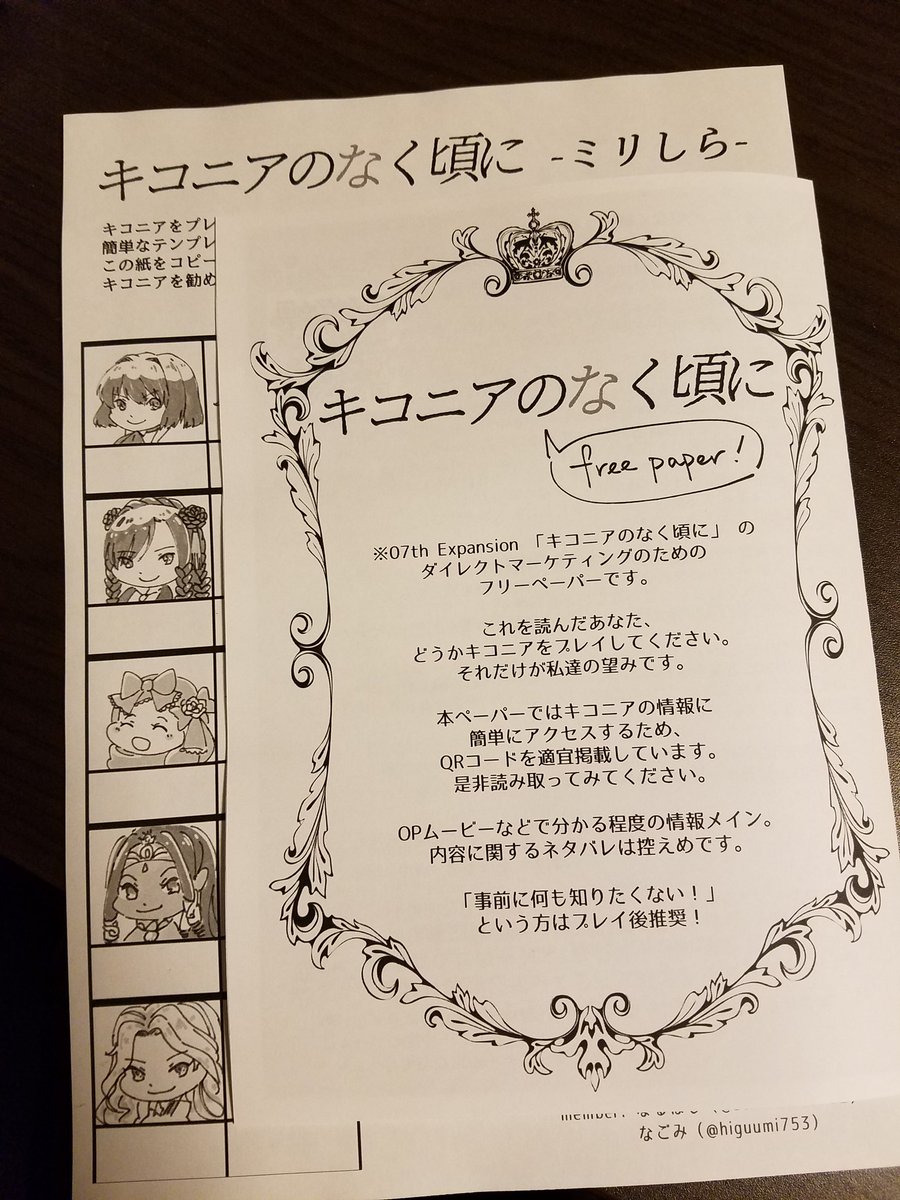 キコニアのなく頃に -ミリしら-
キコニアをプレ
簡単なテンプレ
この紙をコピー
キコニアを勧め
キコニアのなく頃に
free paper!
※07th Expansion 「キコニアのなく頃に」 の
ダイレクトマーケティングのための
フリーペーパーです。
これを読んだあなた、
どうかキコニアをプレイしてください。
それだけが私達の望みです。
本ペーパーではキコニアの情報に
簡単にアクセスするため、
QRコードを適宜掲載しています。
是非読み取ってみてください。
OPムービーなどで分かる程度の情報メイン。
内容に関するネタバレは控えめです。
「事前に何も知りたくない！」
という方はプレイ後推奨！
member:
なごみ (@higuumi753)